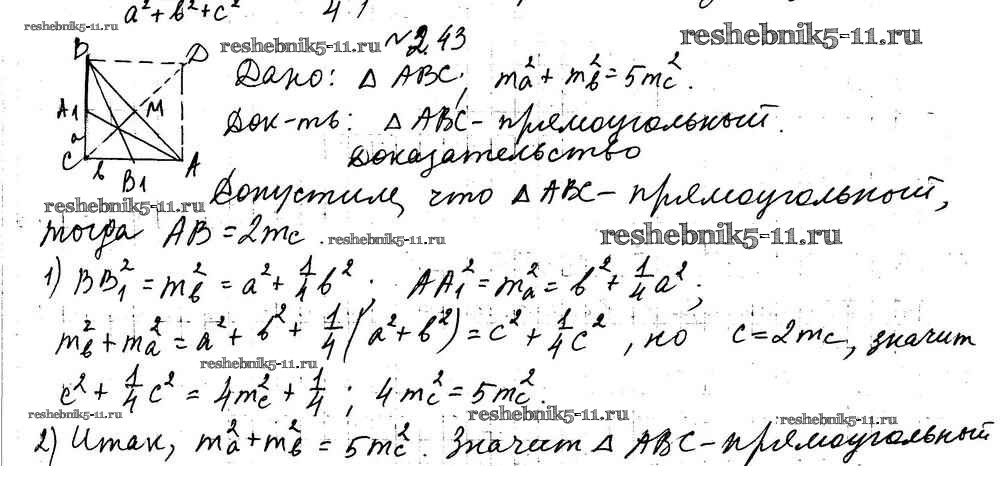 a² + b² + c²    4
reshebnik5-11.ru
reshebnik5-11.ru №243 reshebnik5-11.ru
B D
Дано: △ ABC; m²a + m²b = 5m²c.
A1 M
Док-ть: △ ABC - прямоугольный.
a
C b B1 A
Доказательство
Допустим, что △ ABC - прямоугольный,
reshebnik5-11.ru
тогда AB = 2mc. reshebnik5-11.ru reshebnik5-11.ru
1) BB₁² = m²b = a² + 1/4 b²; AA₁² = m²a = b² + 1/4 a²;
m²b + m²a = a² + b² + 1/4 (a² + b²) = c² + 1/4 c², но c = 2mc, значит
reshebnik5-11.ru
c² + 1/4 c² = 4m²c + 1/4; 4m²c = 5m²c.
reshebnik5-11.ru reshebnik5-11.ru reshebnik5-11.ru
2) Итак, m²a + m²b = 5m²c. Значит △ ABC - прямоугольный